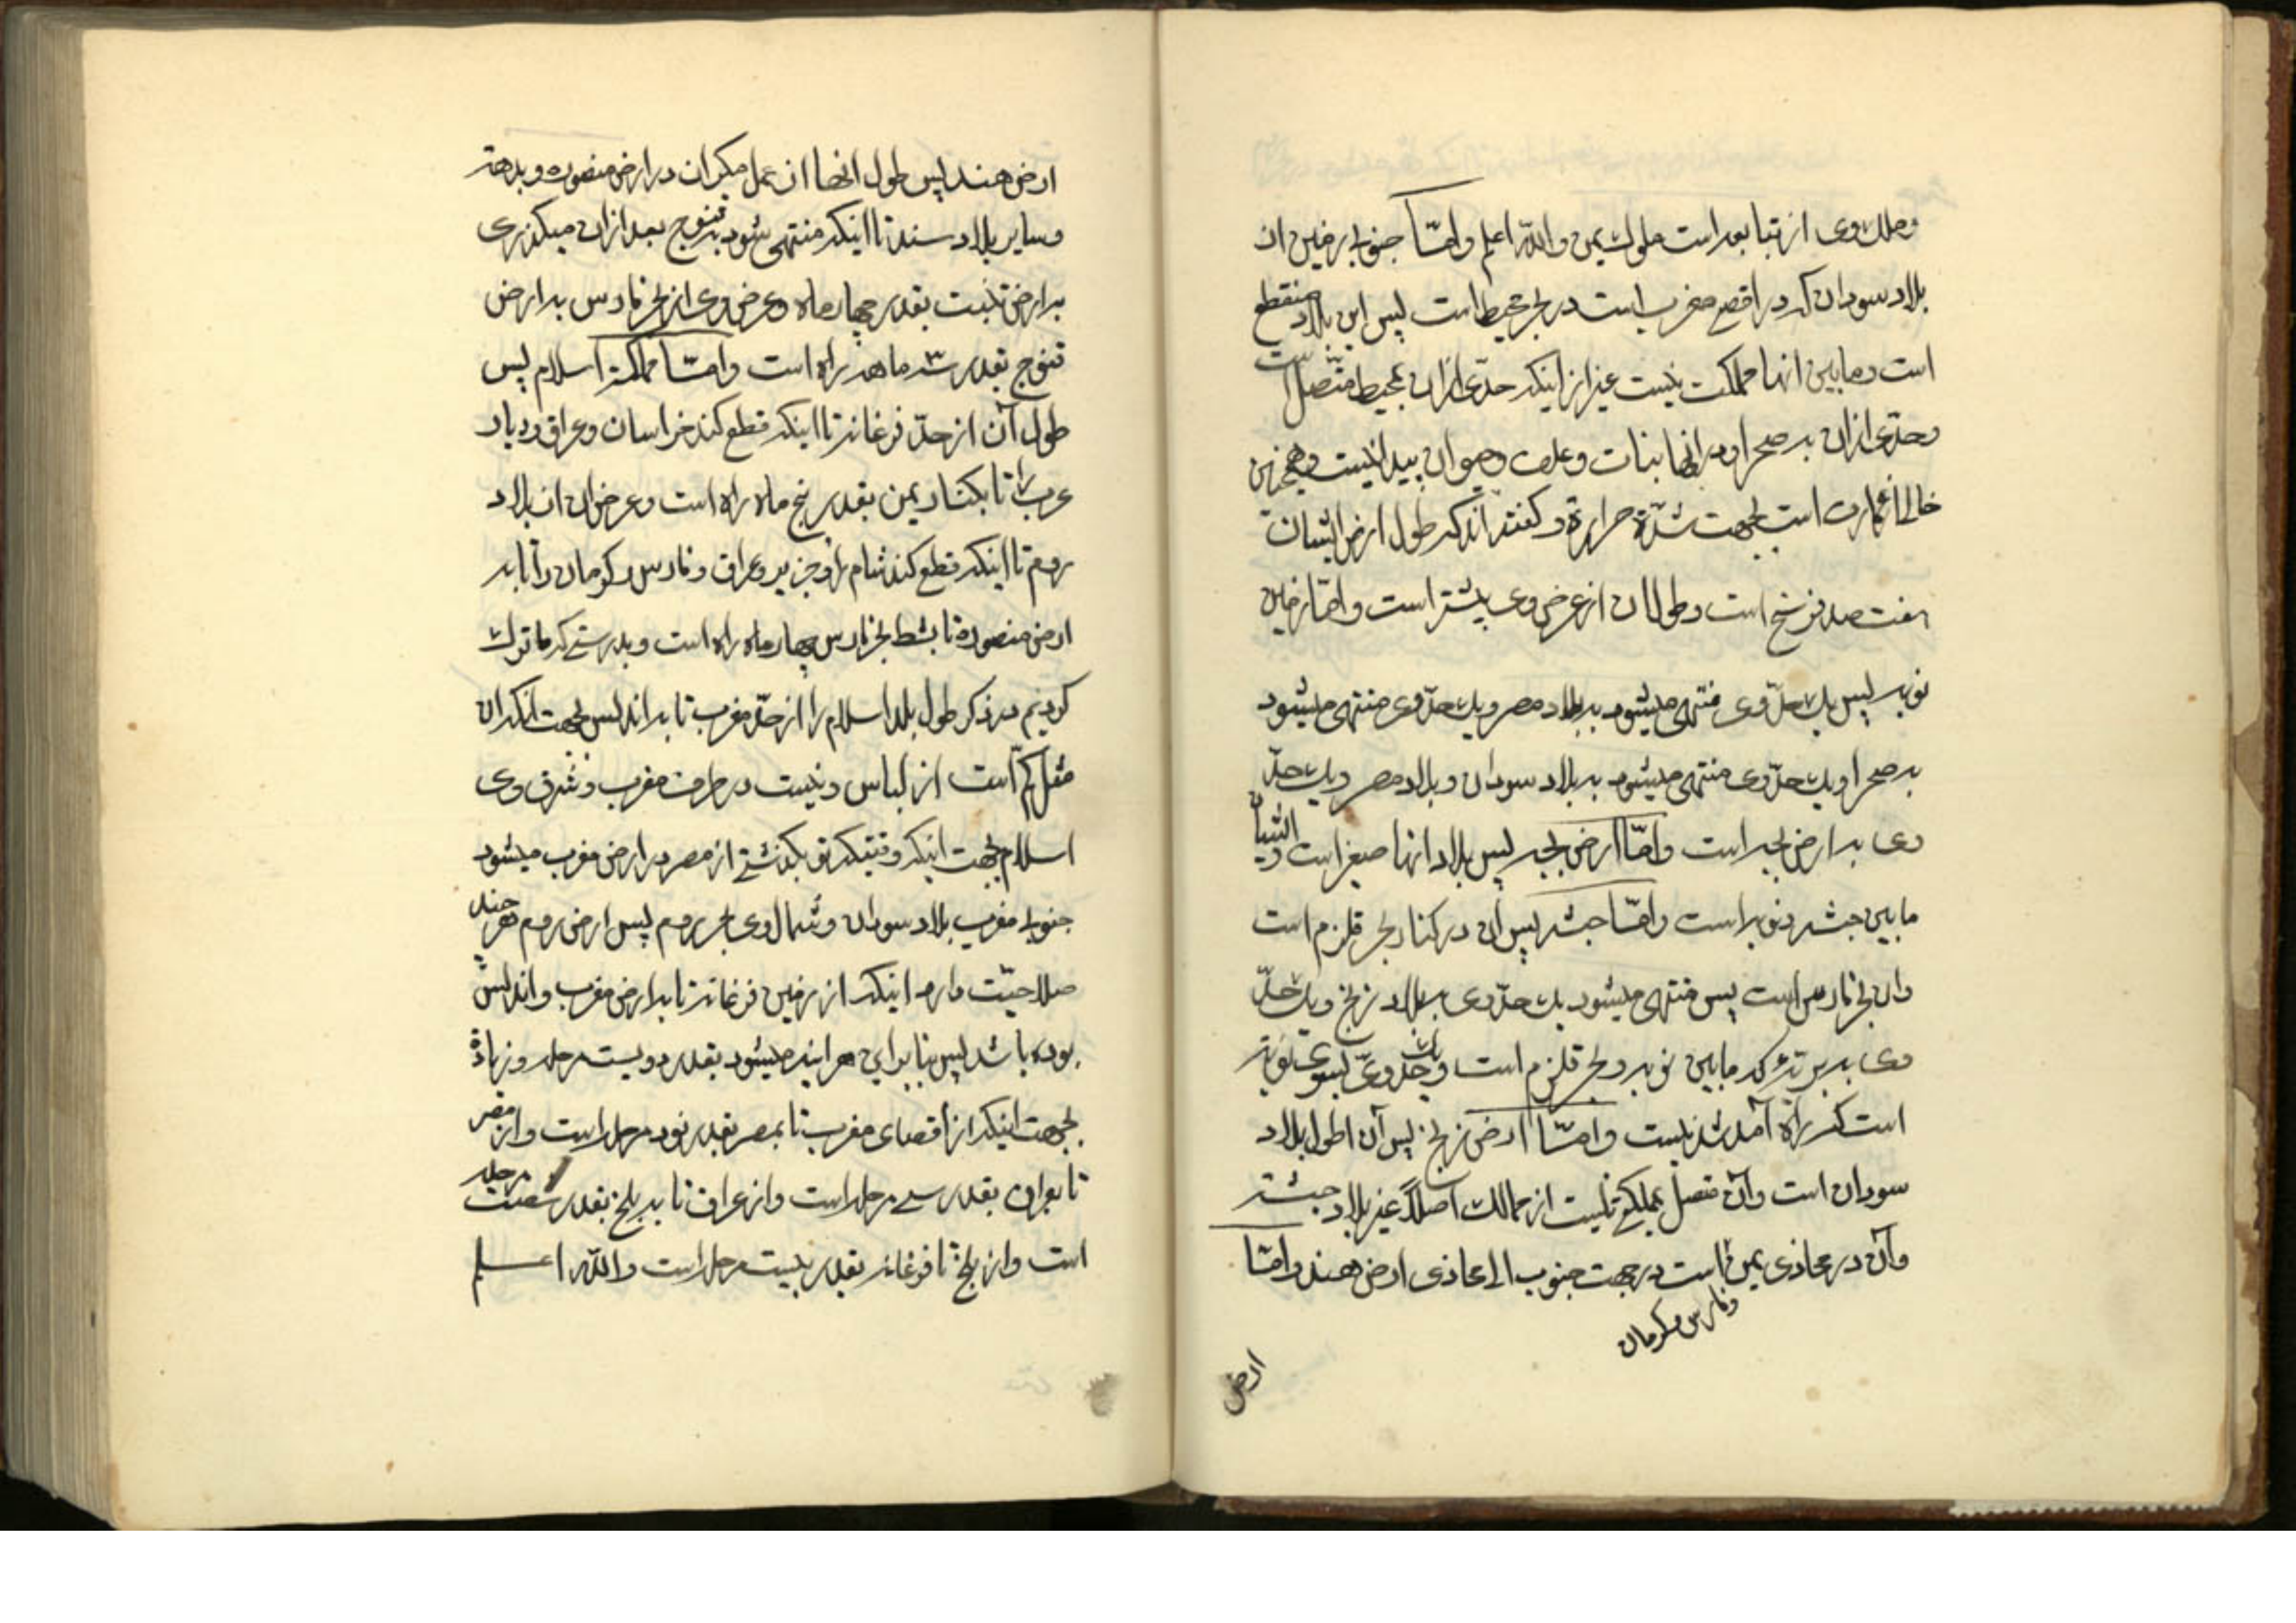 وملك وى از تبابعه است ملوك يمن والله اعلم وامّا جنوبى زمين از
بلاد سودان كه در اقصى مغرب است در بحر محيط است پس اين بلاد منقطع
است ومابين انها مملكت نيست غير از اينكه حدّى ازان بمحيط متّصل است
وحدّى ازان به صحرا ودر انها نبات وعلف وحيوان پيدا نيست وهمچنين
خالى از عمارت است بجهت شدّة حرارة وگفته اند كه طول ارض ايشان
هفت صد فرسخ است وطول ان از عرض وى بيشتر است وامّا زمين
نوبه پس يك حدّ وى منتهى ميشود به بلاد مصر ويك حدّ وى منتهى ميشود
به صحرا ويك حدّ وى منتهى ميشود به بلاد سودان وبلاد مصر ويك حدّ
وى به ارض بجه است وامّا ارض بجه پس بلاد انها صغير است وايشان
مابين حبشه ونوبه است وامّا حبشه پس آن در كنار بحر قلزم است
وان بحر فارس است پس منتهى ميشود يك حدّ وى به بلاد زنج ويك حدّ
وى به بريّه كه مابين نوبه وبحر قلزم است ويك حدّ وى بسوى نوبة
است كه راه آمد شد نيست وامّا ارض زنج پس آن اطول بلاد
سودان است وآن متصل بمملكتى نيست از ممالك اصلاً غير بلاد حبشه
وآن در محاذى يمن است در جهت جنوب الى محاذى ارض هند وامّا
وفارس وكرمان
ارض
ارض هند پس طول انها از عمل مكران در ارض منصوره وبدهة
وساير بلاد سند تا اينكه منتهى شود به قنوج بعد ازان ميگذرى
به ارض تبت بقدر چهار ماه وعرض وى از بحر فارس به ارض
قنوج بقدر سه ماهه راه است وامّا مملكة اسلام پس
طول آن از حدّ فرغانه تا اينكه قطع كند خراسان وعراق وديار
عرب را تا بكنار يمن بقدر پنج ماه راه است وعرض ان از بلاد
روم تا اينكه قطع كند شام را وجزيره وعراق وفارس وكرمان را تا به
ارض منصورة تا بشط بحر فارس چهار ماه راه است وبدرستى كه ما ترك
كرديم در ذكر طول بلد اسلام را از حدّ مغرب تا به اندلس بجهت انكه ان
مثل كُم است از لباس ونيست در طرف مغرب وشرق وى
اسلام بجهت اينكه وقتيكه تو بگذشتى از مصر در ارض مغرب ميشود
جنوبى مغرب بلاد سودان وشمال وى بحر روم پس ارض روم هر چند
صلاحيّت دارد اينكه از زمين فرغانه تا به ارض مغرب واندلس
بوده باشد پس بنابراين هر اينه ميشود بقدر دويست مرحله وزيادة
بجهت اينكه از اقصاى مغرب تا بمصر بقدر نود مرحله است واز مصر
تا بعراق بقدر سى مرحله است واز عراق تا به بلخ بقدر شصت مرحله
است واز بلخ تا فرغانه بقدر بيست مرحله است والله اعلم